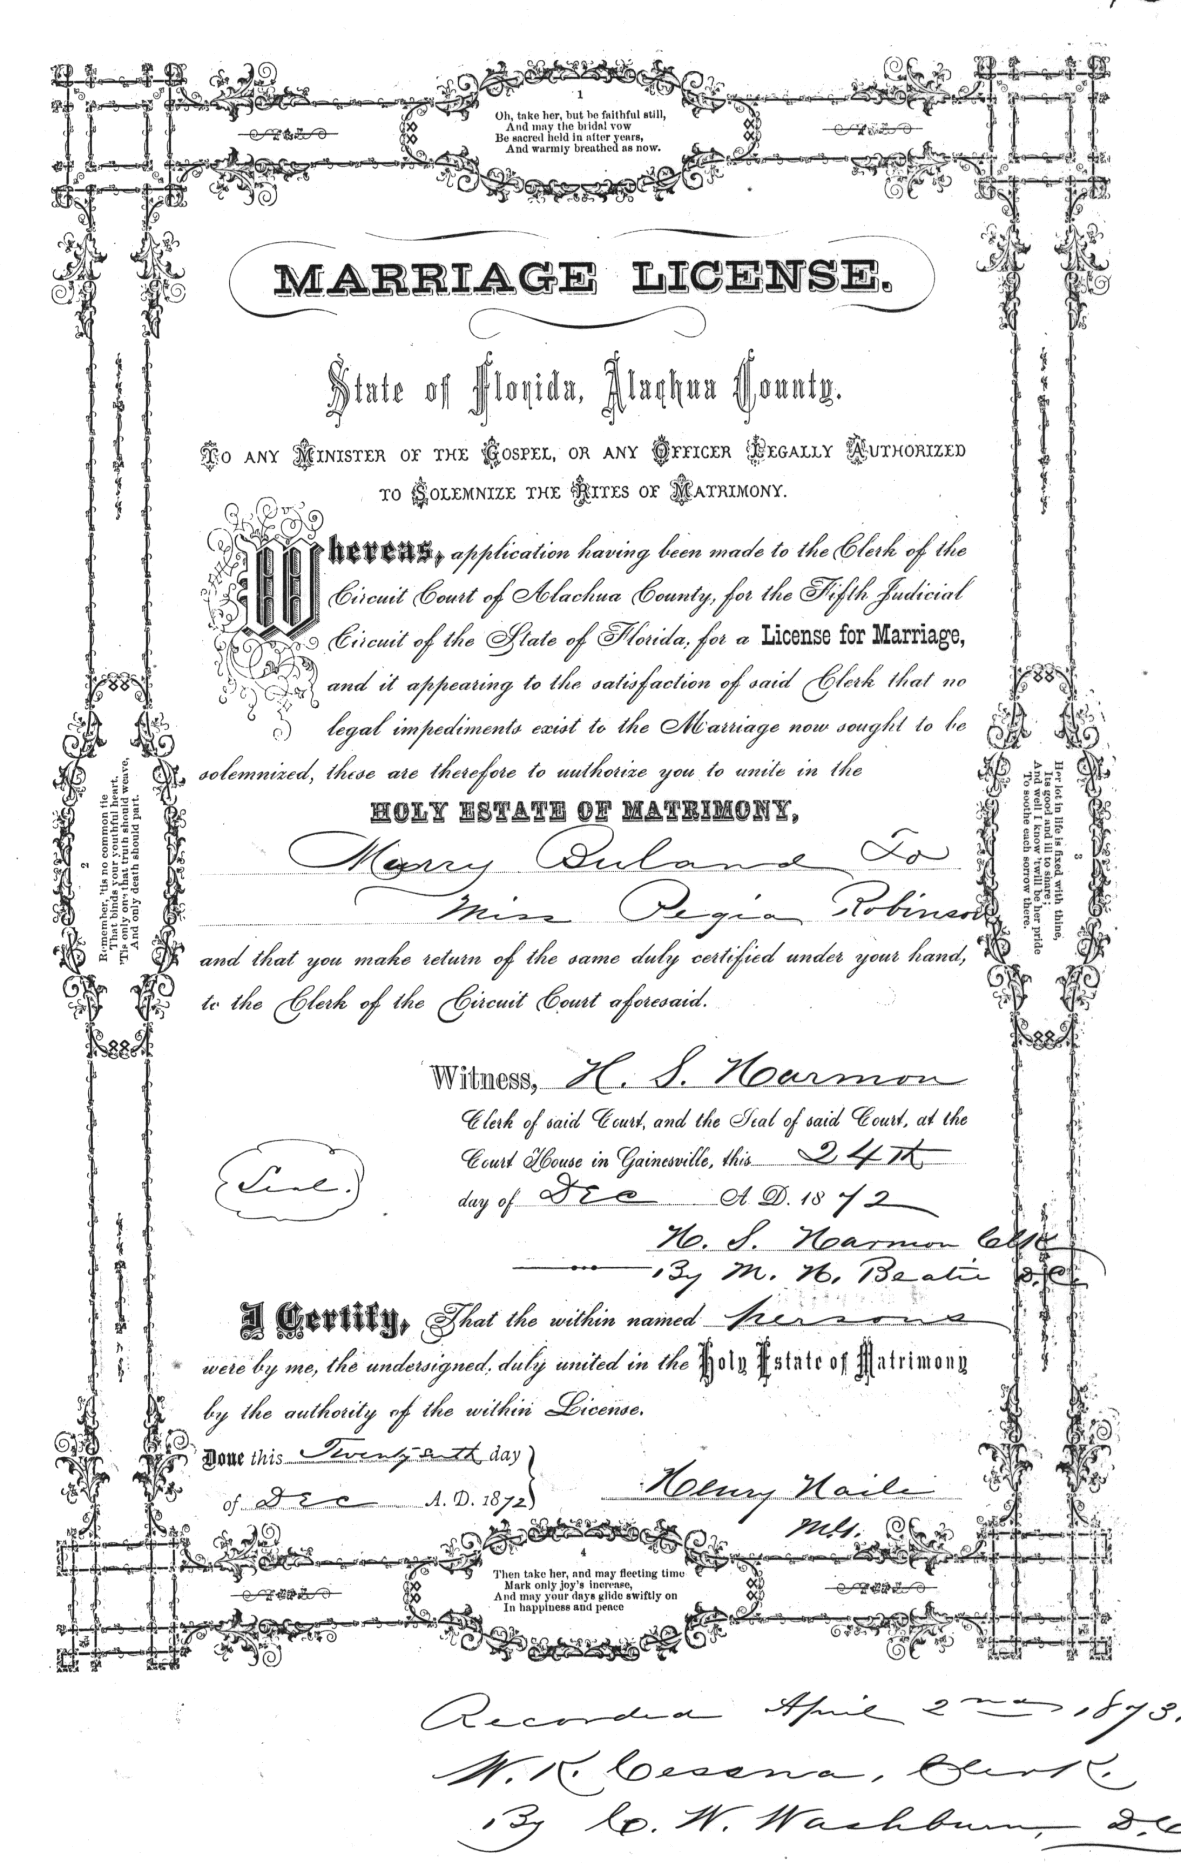 1
Oh, take her, but be faithful still,
And may the bridal vow
Be sacred held in after years,
And warmly breathed as now.
MARRIAGE LICENSE.
State of Florida, Alachua County.
TO ANY MINISTER OF THE GOSPEL, OR ANY OFFICER LEGALLY AUTHORIZED
TO SOLEMNIZE THE RITES OF MATRIMONY.
Whereas, application having been made to the Clerk of the
Circuit Court of Alachua County, for the Fifth Judicial
Circuit of the State of Florida, for a License for Marriage,
and it appearing to the satisfaction of said Clerk that no
legal impediments exist to the Marriage now sought to be
solemnized, these are therefore to authorize you to unite in the
HOLY ESTATE OF MATRIMONY,
Marry Buland To
Miss Regia Robinson
and that you make return of the same duly certified under your hand,
to the Clerk of the Circuit Court aforesaid.
Witness, H. S. Harmon
Clerk of said Court, and the Seal of said Court, at the
Court House in Gainesville, this 24th
day of Dec A. D. 1872
Seal.
H. S. Harmon Clk
By M. H. Beatie D.C.
I Certify, That the within named persons
were by me, the undersigned, duly united in the Holy Estate of Matrimony
by the authority of the within License.
Done this day
of Dec A. D. 1872
Henry Haile
2
Remember, 'tis no common tie
That binds your youthful heart,
'Tis only one that truth should weave,
And only death should part.
3
Her lot in life is fixed with thine,
Its good and ill to share;
And well I know 'twill be her pride
To soothe each sorrow there.
4
Then take her, and may fleeting time
Mark only joy's increase,
And may your days glide swiftly on
In happiness and peace
Recorded April 2nd 1873.
W. K. Cessna, Clerk.
By C. W. Washburn, D.C